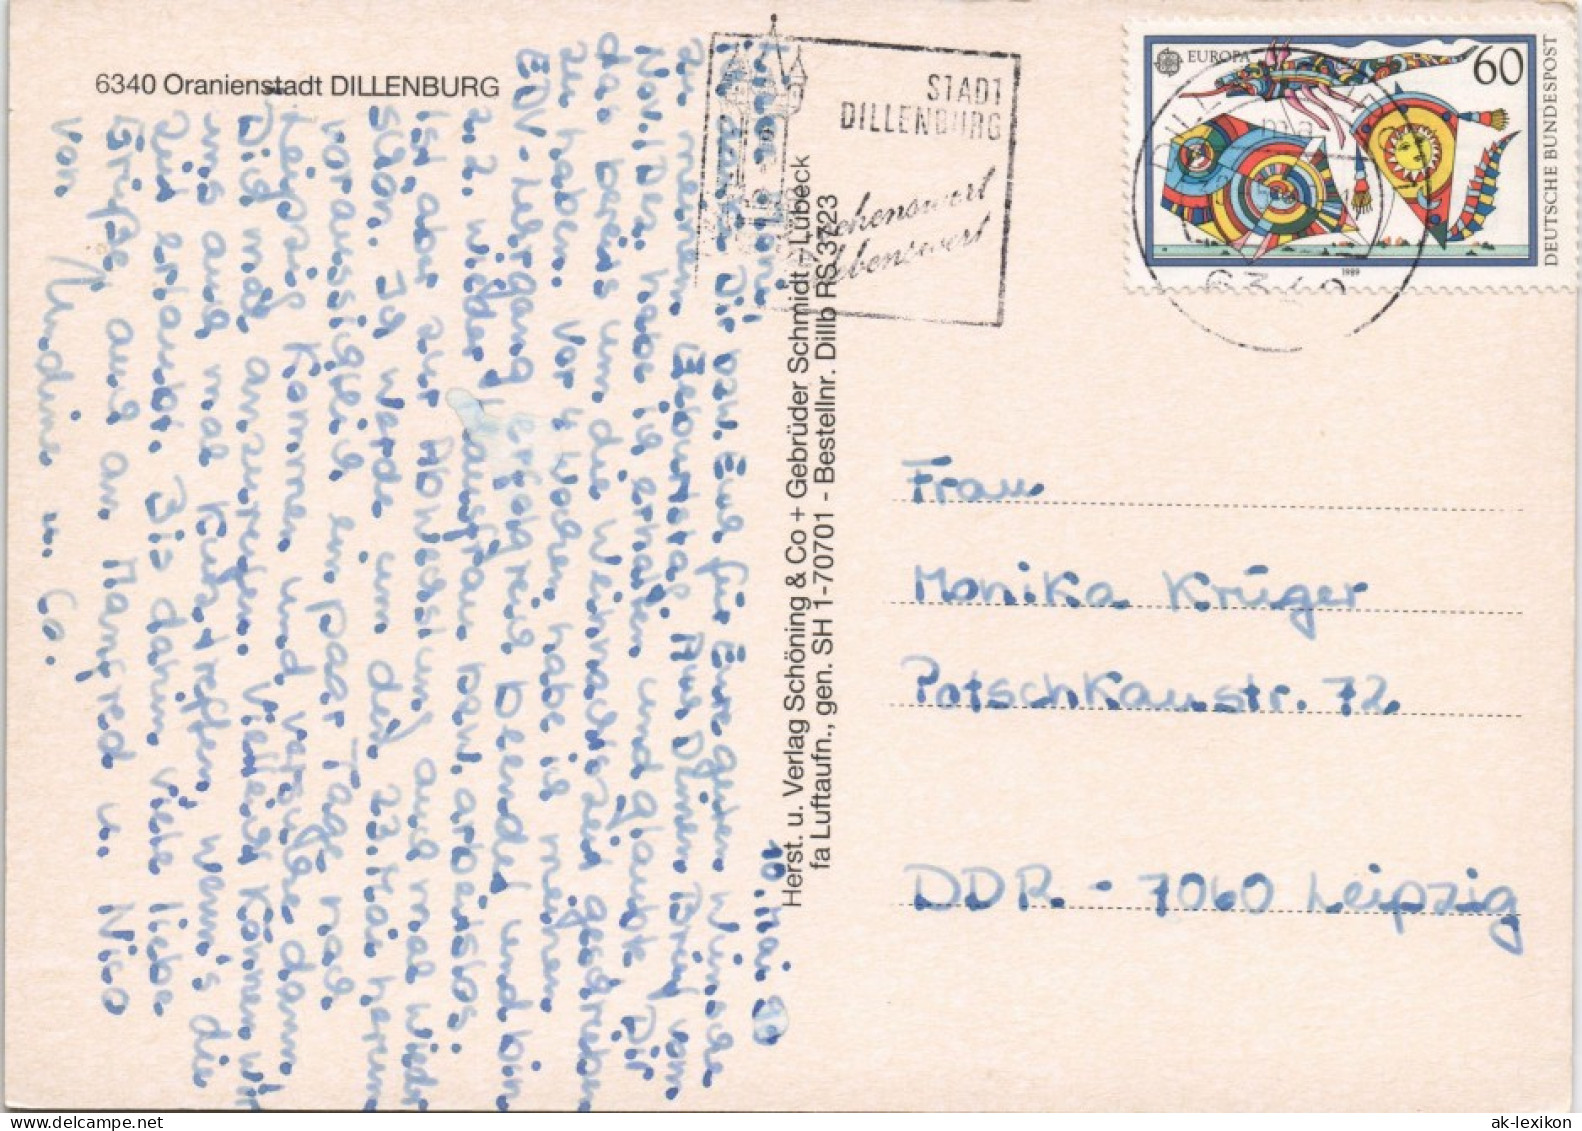 6340 Oranienstadt DILLENBURG
10. Mai 90
Liebe Moni!
Ich danke Dir bzw. Euch für Eure guten Wünsche
zu meinem Geburtstag. Aus Deinen Brief vom
Nov./Dez. habe ich erhalten und glaubte Dir
das bereits um die Weihnachtszeit geschrieben
zu haben. Vor 4 Wochen habe ich meinen
EDV-Lehrgang erfolgreich beendet und bin
z.Z. wieder Hausfrau bzw. arbeitslos.
Ist aber zur Abwechslung auch mal wieder
schön. Ich werde um den 23. Mai herum
voraussichtlich ein paar Tage nach
Leipzig kommen und versuche dann
Dich mal anzurufen. Vielleicht können wir
uns auch mal kurz treffen, wenn's die
Zeit erlaubt. Bis dahin viele liebe
Grüße auch an Manfred u. Nico
von Nadine u. Co.
Herst. u. Verlag Schöning & Co + Gebrüder Schmidt - Lübeck
fa Luftaufn., gen. SH 1-70701 - Bestellnr. Dillb RS 3723
STADT
DILLENBURG
sehenswert
lebenswert
EUROPA
60
DEUTSCHE BUNDESPOST
1989
6340
Frau
Monika Krüger
Patschkaustr. 72
DDR - 7060 Leipzig
ak-lexikon.com